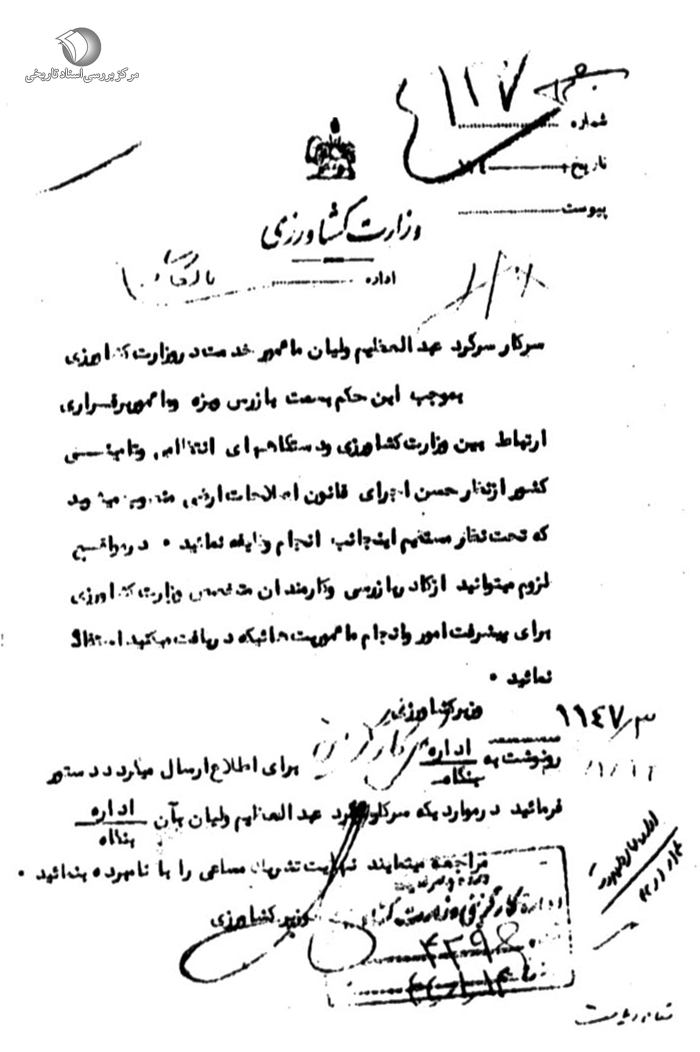 مرکز بررسی اسناد تاریخی
۱۱۷
شماره
تاریخ
پیوست
وزارت کشاورزی
اداره
سرکار سرگرد عبدالعظیم ولیان مامور خدمت در وزارت کشاورزی
بموجب این حکم بسمت بازرس ویژه و مامور برقراری
ارتباط بین وزارت کشاورزی و دستگاههای انتظامی و تامینی
کشور از نظر حسن اجرای قانون اصلاحات ارضی منصوب میشوید
که تحت نظر مستقیم اینجانب انجام وظیفه نمائید ۰ در مواقع
لزوم میتوانید از کادر بازرسی و کارمندان متخصص وزارت کشاورزی
برای پیشرفت امور و انجام ماموریت هائیکه دریافت میکنید استفاده
نمائید ۰
وزیر کشاورزی
۱۱۴۷/۳
رونوشت به اداره بنگاه کارگزینی برای اطلاع ارسال میگردد دستور
فرمائید در مواردیکه سرکار سرگرد عبدالعظیم ولیان بآن اداره بنگاه
مراجعه مینمایند نهایت تشریک مساعی را با نامبرده بنمائید ۰
وزیر کشاورزی
اداره کارگزینی وزارت
۴۳۹۶